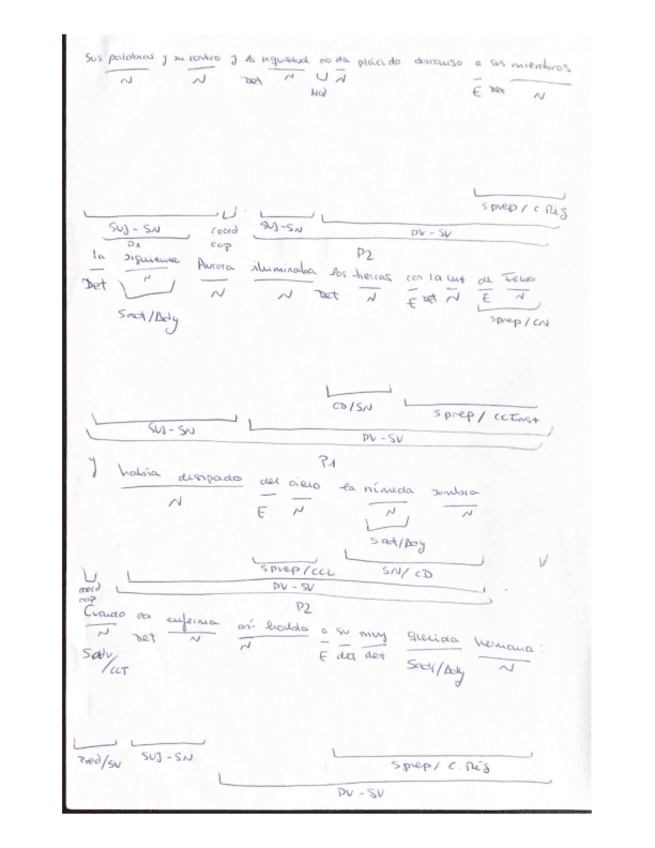 Sus palabras y su rostro y la inquietud no da plácido descanso a sus miembros
N N Det N Ncd N E Det N
Sprep / C. Rég
SUJ - SN coord cop SUJ - SN PV - SV
P1 P2
la siguiente Aurora iluminaba las tierras con la luz de Febo
Det N N N Det N E Det N E N
Sadj/Ady Sprep/CN
CD/SN Sprep/ CCInst
SUJ - SN PV - SV
P1
y había disipado del cielo la húmeda sombra
N E N N N
Sadj/Ady
Sprep/CCL SN/ CD
coord cop PV - SV
P2
Cuando la enferma así habla a su muy querida hermana:
N Det N N E det det N
Sadv/CCT Sadj/Ady
Pred/SV SUJ - SN Sprep/ C. Rég
PV - SV